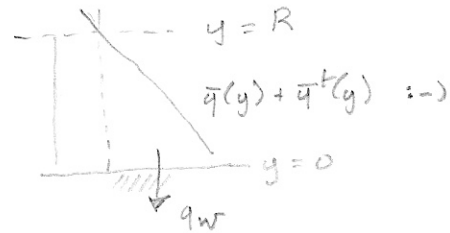 y = R
q̄(y) + q̄ᵗ(y) :-)
y = 0
qw